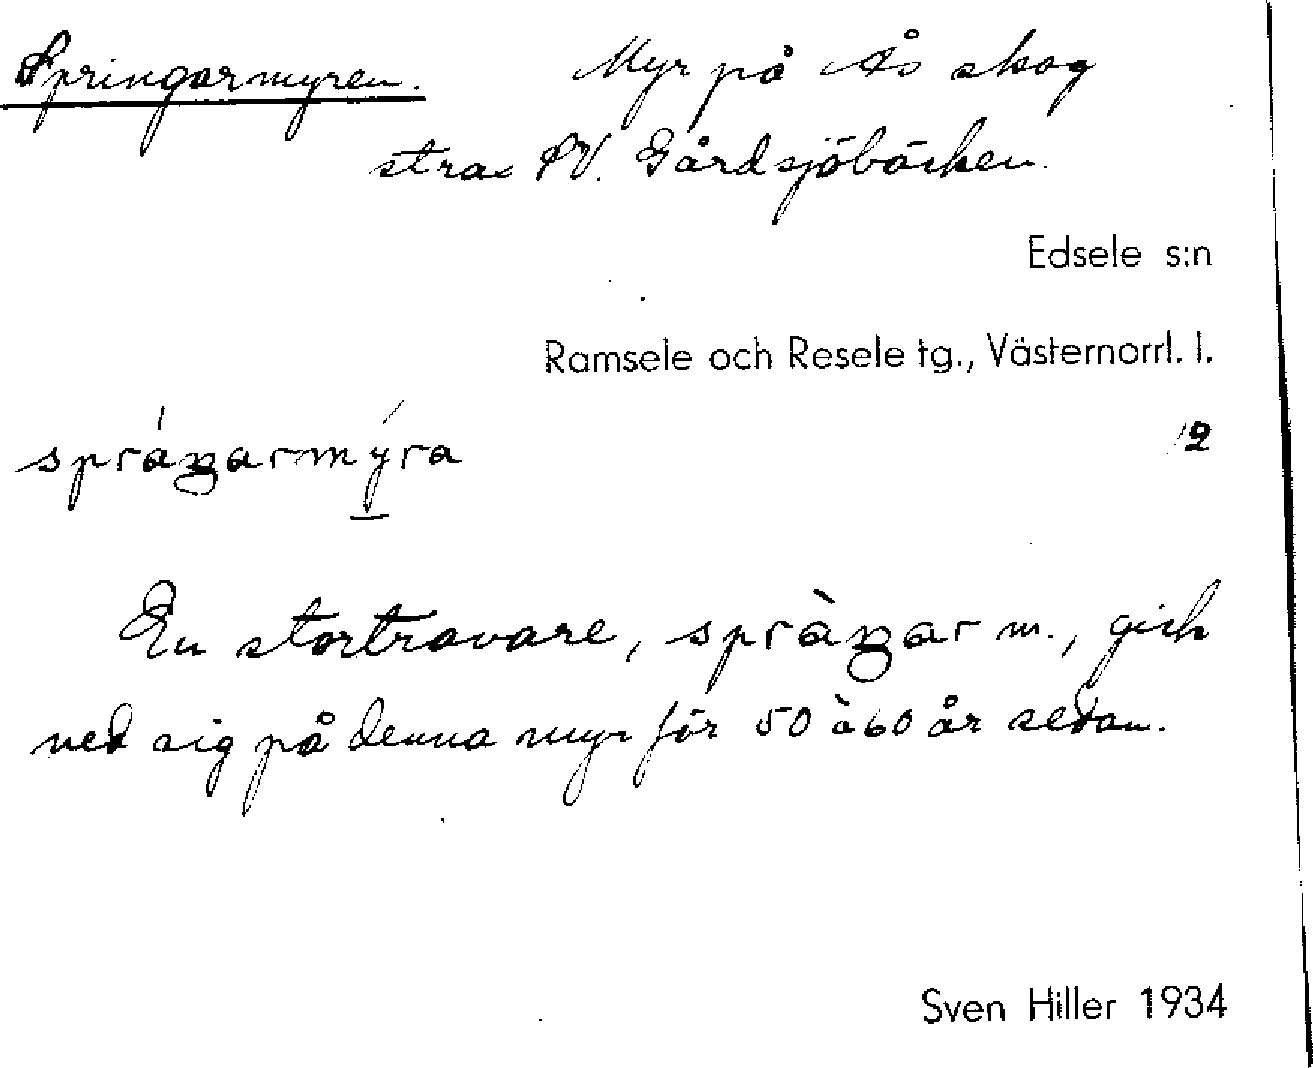 Springarmyren. Myr på Ås skog
strax SV. Gårdsjöbäcken.
Edsele s:n
Ramsele och Resele tg., Västernorrl. l.
12
En stortravare, m., gick
ned sig på denna myr för 50 à 60 år sedan.
Sven Hiller 1934